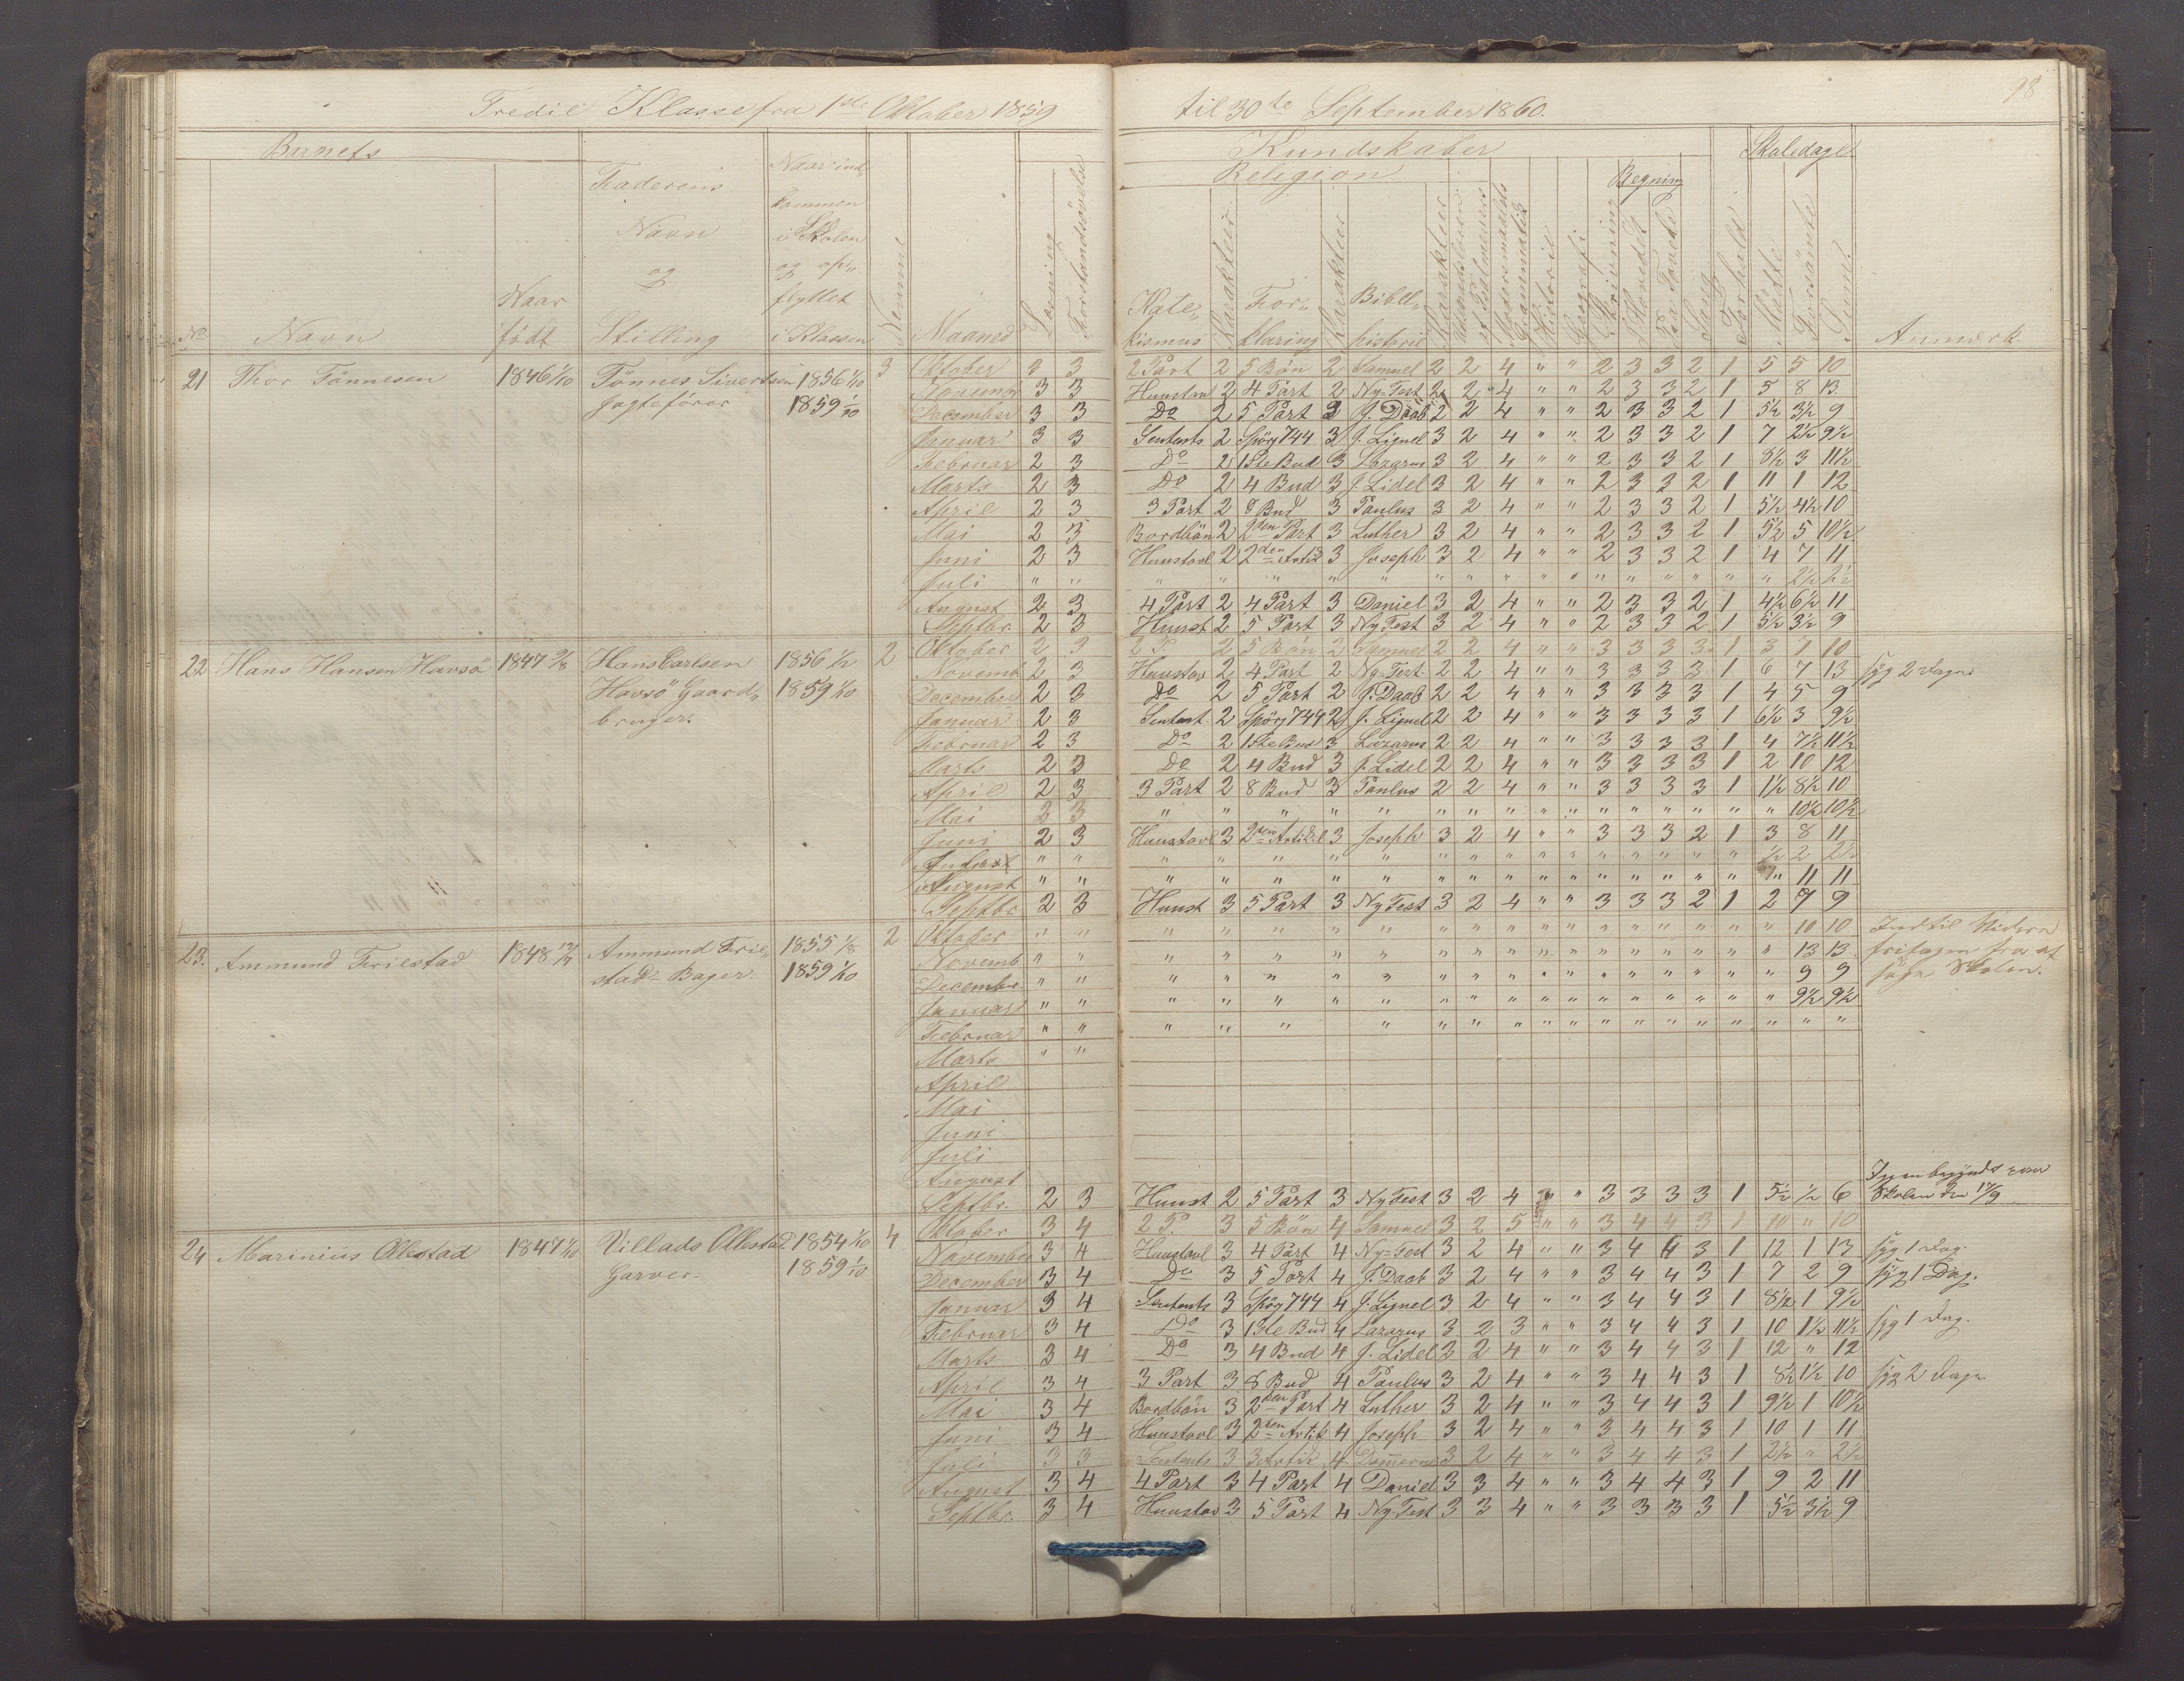 98
Tredie Klasse fra 1ste Oktober 1859 til 30te September 1860.
Barnets
Kundskaber
Skoledage
Religion
Regning
No Navn Naar født
Faderens Navn og Stilling
Naar indkommen i Skolen og opflyttet i Klassen
Nevenne Maaned Læsning Forstandsøvelse
Katekismus Karakteer Forklaring Karakteer Bibelhistorie Karakteer
Modersmaalets Gramatik Historie Geografi Skrivning I Hovedet Paa Tavle Sang Forhold Mødte Forsømte Sum
Anmærk.
21 Thor Tönnesen 1846 1/10 Tönnes Sivertsen 1856 1/10 3 Oktober 3 3 2 Part 2 5 Bön 2 Samuel 2 2 4 " " 2 3 3 2 1 5 5 10
Jagtefører 1859 1/10 November 3 3 Huustavl 2 4 Part 2 Ny-Test 2 2 4 " " 2 3 3 2 1 5 8 13
December 3 3 Do 2 5 Part 3 J. Daab 2 2 4 " " 2 3 3 2 1 5½ 3½ 9
Januar 3 3 Sentents 2 Spörg 744 3 J. Lignel 3 2 4 " " 2 3 3 2 1 7 2½ 9½
Februar 2 3 Do 2 1ste Bud 3 Lazarus 3 2 4 " " 2 3 3 2 1 8½ 3 11½
Marts 2 3 Do 2 4 Bud 3 J. Lidel 3 2 4 " " 2 3 3 2 1 11 1 12
April 2 3 3 Part 2 8 Bud 3 Paulus 3 2 4 " " 2 3 3 2 1 5½ 4½ 10
Mai 2 3 Bordbön 2 2den Part 3 Luther 3 2 4 " " 2 3 3 2 1 5½ 5 10½
Juni 2 3 Huustavl 2 2den Artik 3 Joseph 3 2 4 " " 2 3 3 2 1 4 7 11
Juli " " " " " " " " " " " " " " " " " " 2½ 2½
August 2 3 4 Part 2 4 Part 3 Daniel 3 2 4 " " 2 3 3 2 1 4½ 6½ 11
Septbr. 2 3 Huust 2 5 Part 3 Ny Test 3 2 4 " " 2 3 3 2 1 5½ 3½ 9
22 Hans Hansen Havsö 1847 9/8 Hans Carlsen 1856 1/2 2 Oktober 2 3 2 P. 2 5 Bön 2 Samuel 2 2 4 " " 3 3 3 3 1 3 7 10
Havsö Gaard- 1859 1/10 Novemb 2 3 Huustav 2 4 Part 2 Ny-Test. 2 2 4 " " 3 3 3 3 1 6 7 13 syg 2 Dage
bruger. December 2 3 Do 2 5 Part 2 J. Daab 2 2 4 " " 3 3 3 3 1 4 5 9
Januar 2 3 Sentent 2 Spörg 744 2 J. Lignel 2 2 4 " " 3 3 3 3 1 6½ 3 9½
Februar 2 3 Do 2 1ste Bud 3 Lazarus 2 2 4 " " 3 3 3 3 1 4 7½ 11½
Marts 2 3 Do 2 4 Bud 3 J. Lidel 2 2 4 " " 3 3 3 3 1 2 10 12
April 2 3 3 Part 2 8 Bud 3 Paulus 2 2 4 " " 3 3 3 3 1 1½ 8½ 10
Mai 2 3 " " " " " " " " " " " " " " " " " 10½ 10½
Juni 2 3 Huustavl 3 2den Artikel 3 Joseph 3 2 4 " " 3 3 3 2 1 3 8 11
" " " " " " " " " " " " " " " " " " ½ 2 2½
August " " " " " " " " " " " " " " " " " " " 11 11
Septbr 2 3 Huust 3 5 Part 3 Ny Test 3 2 4 " " 3 3 3 2 1 2 7 9
23. Ammund Friestad 1848 Ammund Frie- 1855 1/8 2 Oktober " " " " " " " " " " " " " " " " " " " 10 10 Indtil Videre
stad - Bager. 1859 1/10 Novemb " " " " " " " " " " " " " " " " " " " 13 13 fritagen fra at
Decembr " " " " " " " " " " " " " " " " " " " 9 9 søge Skolen.
Januar " " " " " " " " " " " " " " " " " " " 9½ 9½
Februar " " " " " " " " " " " " " " " " " " " "
Marts " "
April
Mai
Juni
Juli
August
Septbr. 2 3 Huust 2 5 Part 3 Ny Test 3 2 4 " " 3 3 3 3 1 5½ ½ 6 Skolen den
24 Marinius Ollestad 1847 1/10 Villads Ollestad 1854 1/10 4 Oktober 3 4 2 P. 3 5 Bön 4 Samuel 3 2 5 " " 3 4 4 3 1 10 " 10
Garver. 1859 1/10 November 3 4 Huustavl 3 4 Part 4 Ny-Test 3 2 4 " " 3 4 4 3 1 12 1 13 syg 1 Dag.
December 3 4 Do 3 5 Part 4 J. Daab 3 2 4 " " 3 4 4 3 1 7 2 9 syg 1 Dag.
Januar 3 4 Sentents 3 Spörg 744 4 J. Lignel 3 2 4 " " 3 4 4 3 1 8½ 1 9½
Februar 3 4 Do 3 1ste Bud 4 Lazarus 3 2 3 " " 3 4 4 3 1 10 1½ 11½ syg 1 Dag.
Marts 3 4 Do 3 4 Bud 4 J. Lidel 3 2 4 " " 3 4 4 3 1 12 " 12
April 3 4 3 Part 3 8 Bud 4 Paulus 3 2 4 " " 3 4 4 3 1 8½ 1½ 10 syg 2 Dage
Mai 3 4 Bordbön 3 2den Part 4 Luther 3 2 4 " " 3 4 4 3 1 9½ 1 10½
Juni 3 4 Huustavl 3 2den Artik 4 Joseph 3 2 4 " " 3 4 4 3 1 10 1 11
Juli 3 3 Sentents 3 3 Artik 4 Dommerne 3 2 4 " " 3 4 4 3 1 2½ " 2½
August 3 4 4 Part 3 4 Part 4 Daniel 3 3 4 " " 3 4 4 3 1 9 2 11
Septbr. 3 4 Huustav 3 5 Part 4 Ny Test 3 3 4 " " 3 3 3 3 1 5½ 3½ 9